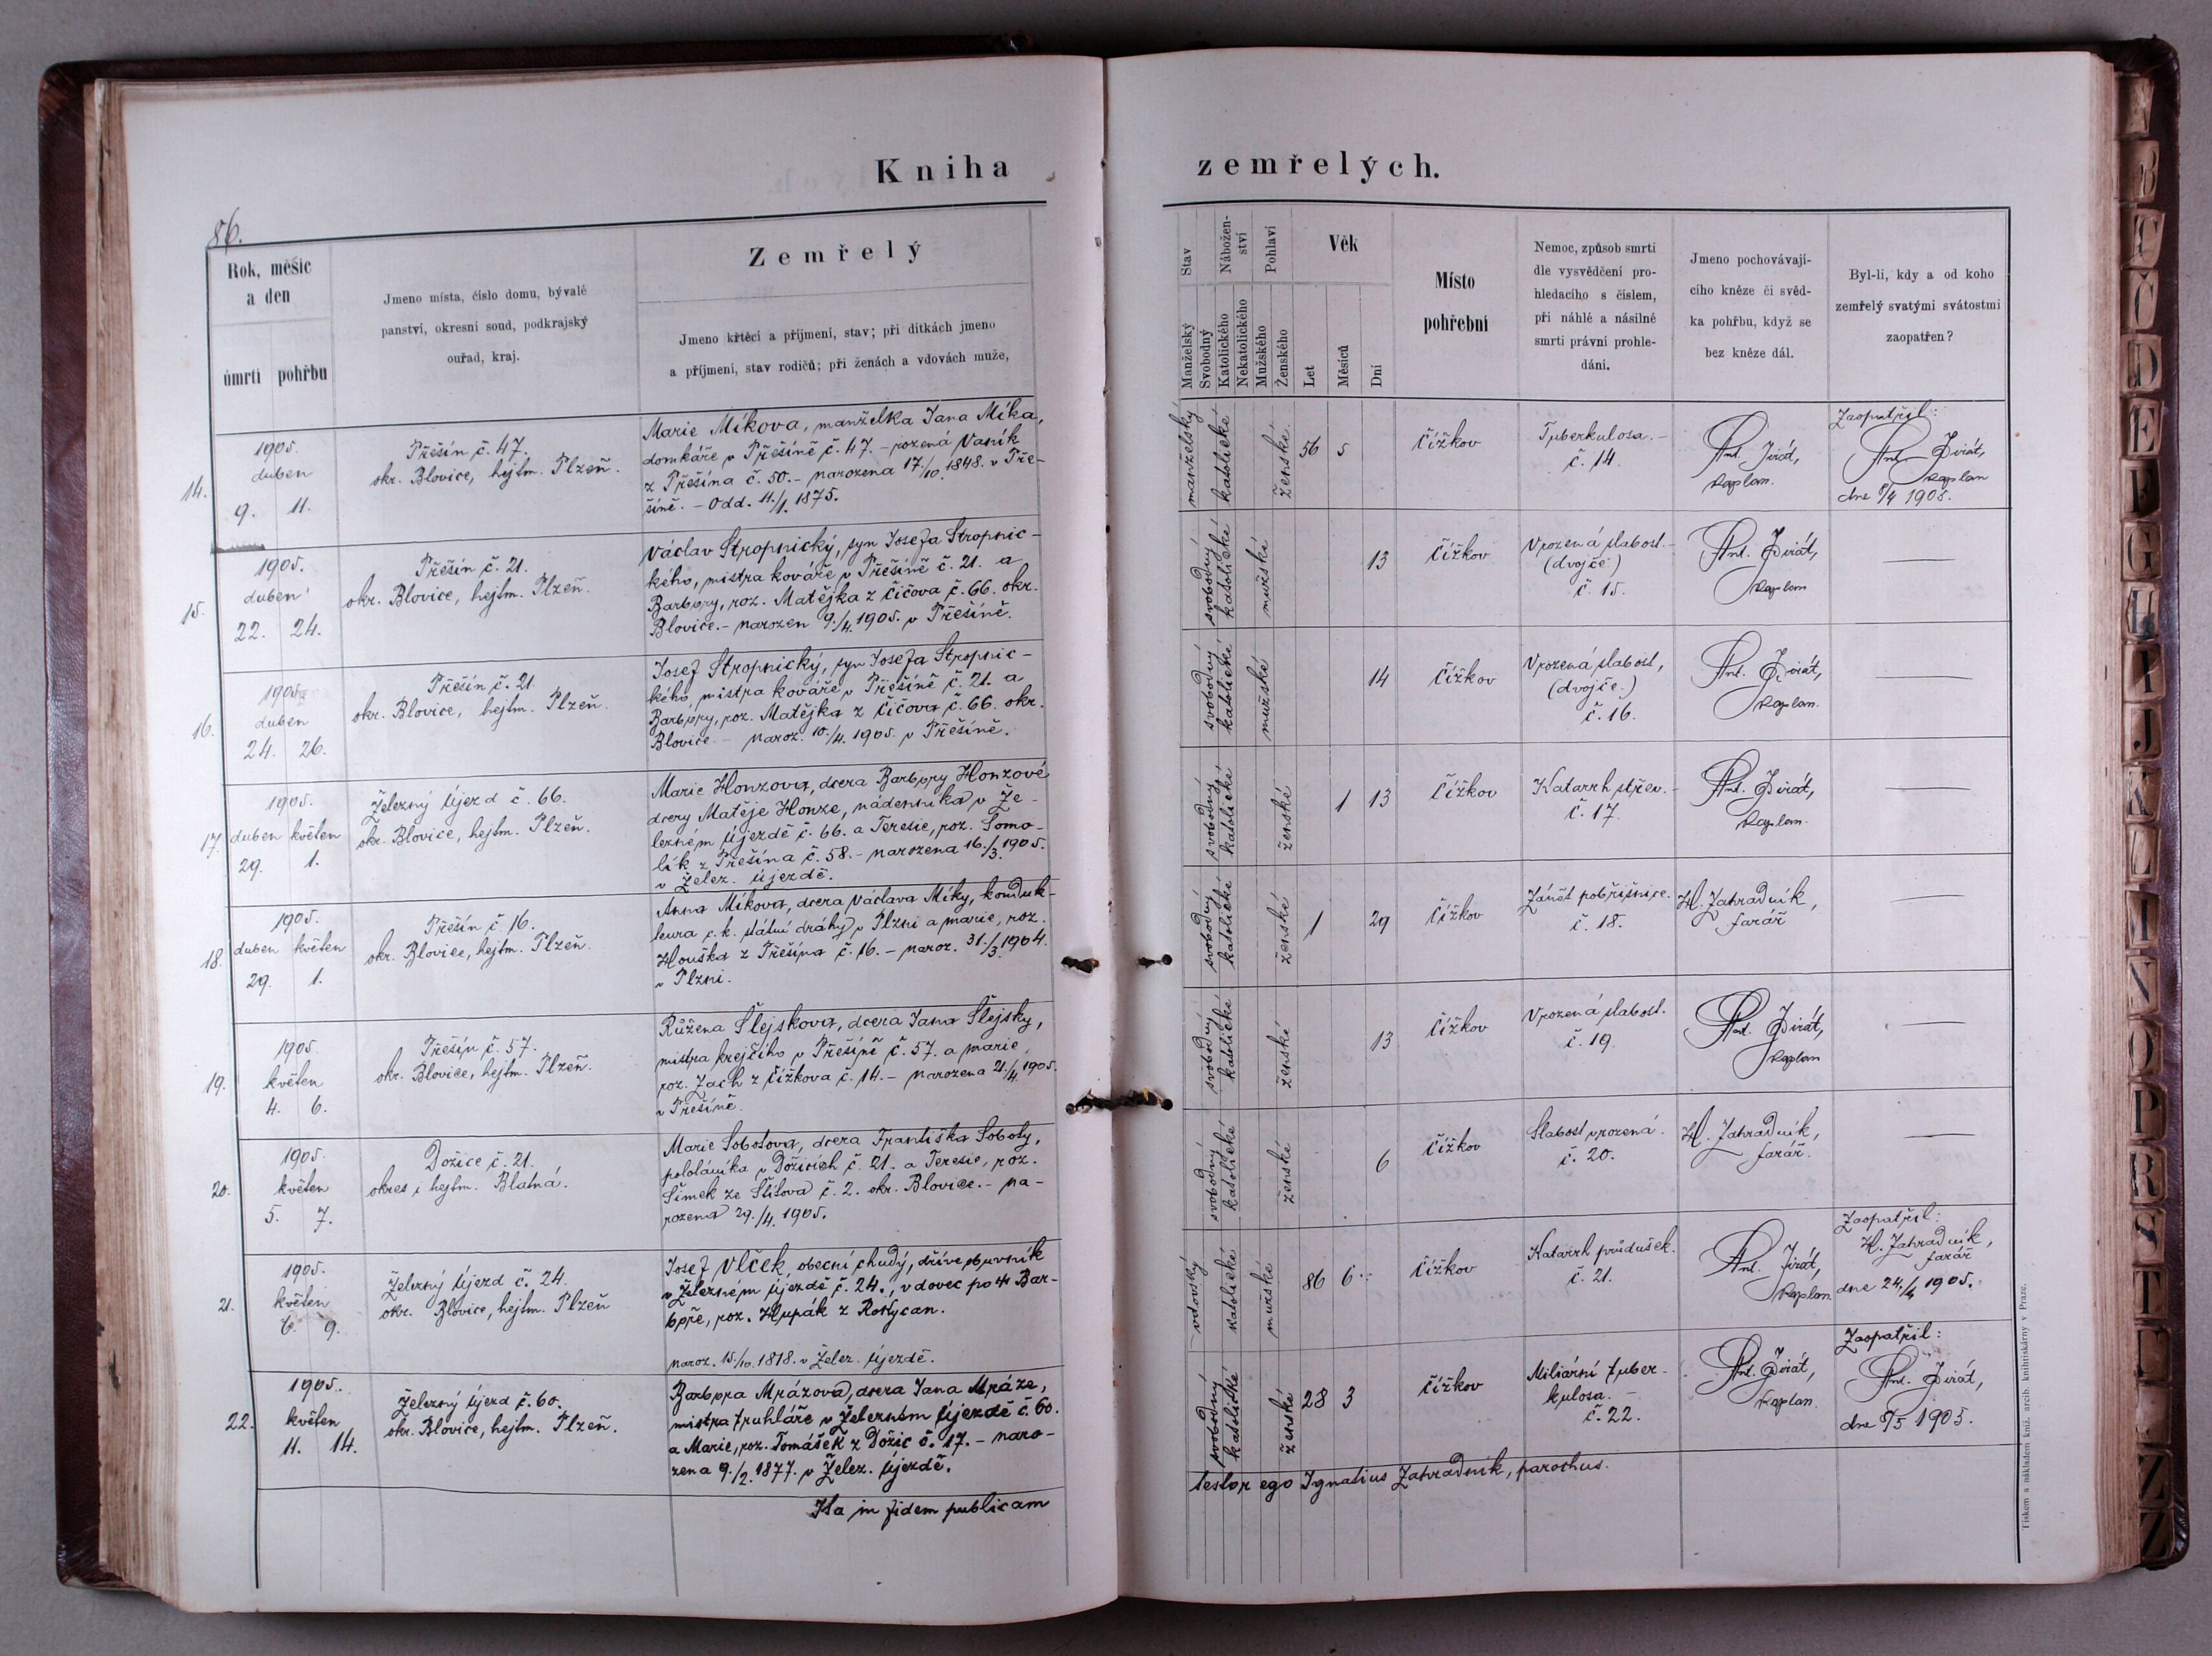 Kniha zemřelých.
86.
Rok, měsíc
a den
úmrtí pohřbu
Jmeno místa, číslo domu, bývalé
panství, okresní soud, podkrajský
ouřad, kraj.
Zemřelý
Jmeno křtěcí a příjmení, stav; při dítkách jmeno
a příjmení, stav rodičů; při ženách a vdovách muže,
Stav
Manželský
Svobodný
Nábožen-
ství
Katolického
Nekatolického
Pohlaví
Mužského
Ženského
Věk
Let
Měsíců
Dní
Místo
pohřební
Nemoc, způsob smrti
dle vysvědčení pro-
hledacího s číslem,
při náhlé a násilné
smrti právní prohle-
dání.
Jmeno pochovávají-
cího kněze či svěd-
ka pohřbu, když se
bez kněze dál.
Byl-li, kdy a od koho
zemřelý svatými svátostmi
zaopatřen?
14.
1905.
duben
9. 11.
Přešín č. 47.
okr. Blovice, hejtm. Plzeň.
Marie Míkova, manželka Jana Míka,
domkáře v Přešíně č. 47. - rozená Vaník
z Přešína č. 50. - narozena 17./10. 1848. v Pře-
šíně. - Odd. 11./1. 1875.
manželský
katolické
ženské
56 5
Čížkov
Tuberkulosa. -
č. 14.
Ant. Jirát,
kaplan.
Zaopatřil:
Ant. Jirát,
kaplan
dne 8/4 1905.
15.
1905.
duben
22. 24.
Přešín č. 21.
okr. Blovice, hejtm. Plzeň.
Václav Stropnický, syn Josefa Stropnic-
kého, mistra kováře v Přešíně č. 21. a
Barbory, roz. Matějka z Čičova č. 66. okr.
Blovice. - narozen 9./4. 1905. v Přešíně.
svobodný
katolické
mužské
13
Čížkov
Vrozená slabost. -
(dvojče)
č. 15.
Ant. Jirát,
kaplan
16.
1905.
duben
24. 26.
Přešín č. 21.
okr. Blovice, hejtm. Plzeň.
Josef Stropnický, syn Josefa Stropnic-
kého, mistra kováře v Přešíně č. 21. a
Barbory, roz. Matějka z Čičova č. 66. okr.
Blovice. - naroz. 10./4. 1905. v Přešíně.
svobodný
katolické
mužské
14
Čížkov
Vrozená slabost,
(dvojče.)
č. 16.
Ant. Jirát,
kaplan.
17.
1905.
duben květen
29. 1.
Železný Újezd č. 66.
okr. Blovice, hejtm. Plzeň.
Marie Honzova, dcera Barbory Honzové
dcery Matěje Honze, nádenníka v Že-
lezném Újezdě č. 66. a Teresie, roz. Somo-
lík z Přešína č. 58. - narozena 16./3. 1905.
v Želez. Újezdě.
svobodný
katolické
ženské
1 13
Čížkov
Katarrh střev. -
č. 17.
Ant. Jirát,
kaplan.
18.
1905.
duben květen
29. 1.
Přešín č. 16.
okr. Blovice, hejtm. Plzeň.
Anna Míkova, dcera Václava Míky, konduk-
teura c. k. státní dráhy v Plzni a Marie, roz.
Houška z Přešína č. 16. - naroz. 31./3. 1904.
v Plzni.
svobodný
katolické
ženské
1 29
Čížkov
Zánět pobřišnice.
č. 18.
H. Zahradník,
farář
19.
1905.
květen
4. 6.
Přešín č. 57.
okr. Blovice, hejtm. Plzeň.
Růžena Šlejskova, dcera Jana Šlejsky,
mistra krejčího v Přešíně č. 57. a Marie,
roz. Zach z Čížkova č. 14. - narozena 21./4. 1905.
v Přešíně.
svobodný
katolické
ženské
13
Čížkov
Vrozená slabost.
č. 19.
Ant. Jirát,
kaplan
20.
1905.
květen
5. 7.
Dožice č. 21.
okres i hejtm. Blatná.
Marie Sobotova, dcera Františka Soboty,
pololáníka v Dožicích č. 21. a Teresie, roz.
Šimek ze Štítova č. 2. okr. Blovice. - na-
rozena 29./4. 1905.
svobodný
katolické
ženské
6
Čížkov
Slabost vrozená.
č. 20.
H. Zahradník,
farář.
21.
1905.
květen
6. 9.
Železný Újezd č. 24.
okr. Blovice, hejtm. Plzeň
Josef Vlček, obecní chudý, dříve obuvník
v Železném Újezdě č. 24., vdovec po + Bar-
boře, roz. Hupák z Rokycan.
naroz. 15./10. 1818. v Želez. Újezdě.
vdovský
katolické
mužské
86 6
Čížkov
Katarrh průdušek.
č. 21.
Ant. Jirát,
kaplan
Zaopatřil:
H. Zahradník,
farář
dne 24./4 1905.
22.
1905.
květen
11. 14.
Železný Újezd č. 60.
okr. Blovice, hejtm. Plzeň.
Barbora Mrázova, dcera Jana Mráze,
mistra truhláře v Železném Újezdě č. 60.
a Marie, roz. Tomášek z Dožic č. 17. - naro-
zena 9./2. 1877. v Želez. Újezdě.
svobodný
katolické
ženské
28 3
Čížkov
Miliární tuber-
kulosa. -
č. 22.
Ant. Jirát,
kaplan.
Zaopatřil:
Ant. Jirát,
dne 8/5 1905.
Ita in fidem publicam testor ego Ignatius Zahradník, parochus.
Tiskem a nákladem kníž. arcib. knihtiskárny v Praze.
B
C
Č
D
E
F
G
H
I
J
K
L
M
N
O
P
R
S
T
U
Z
Ž